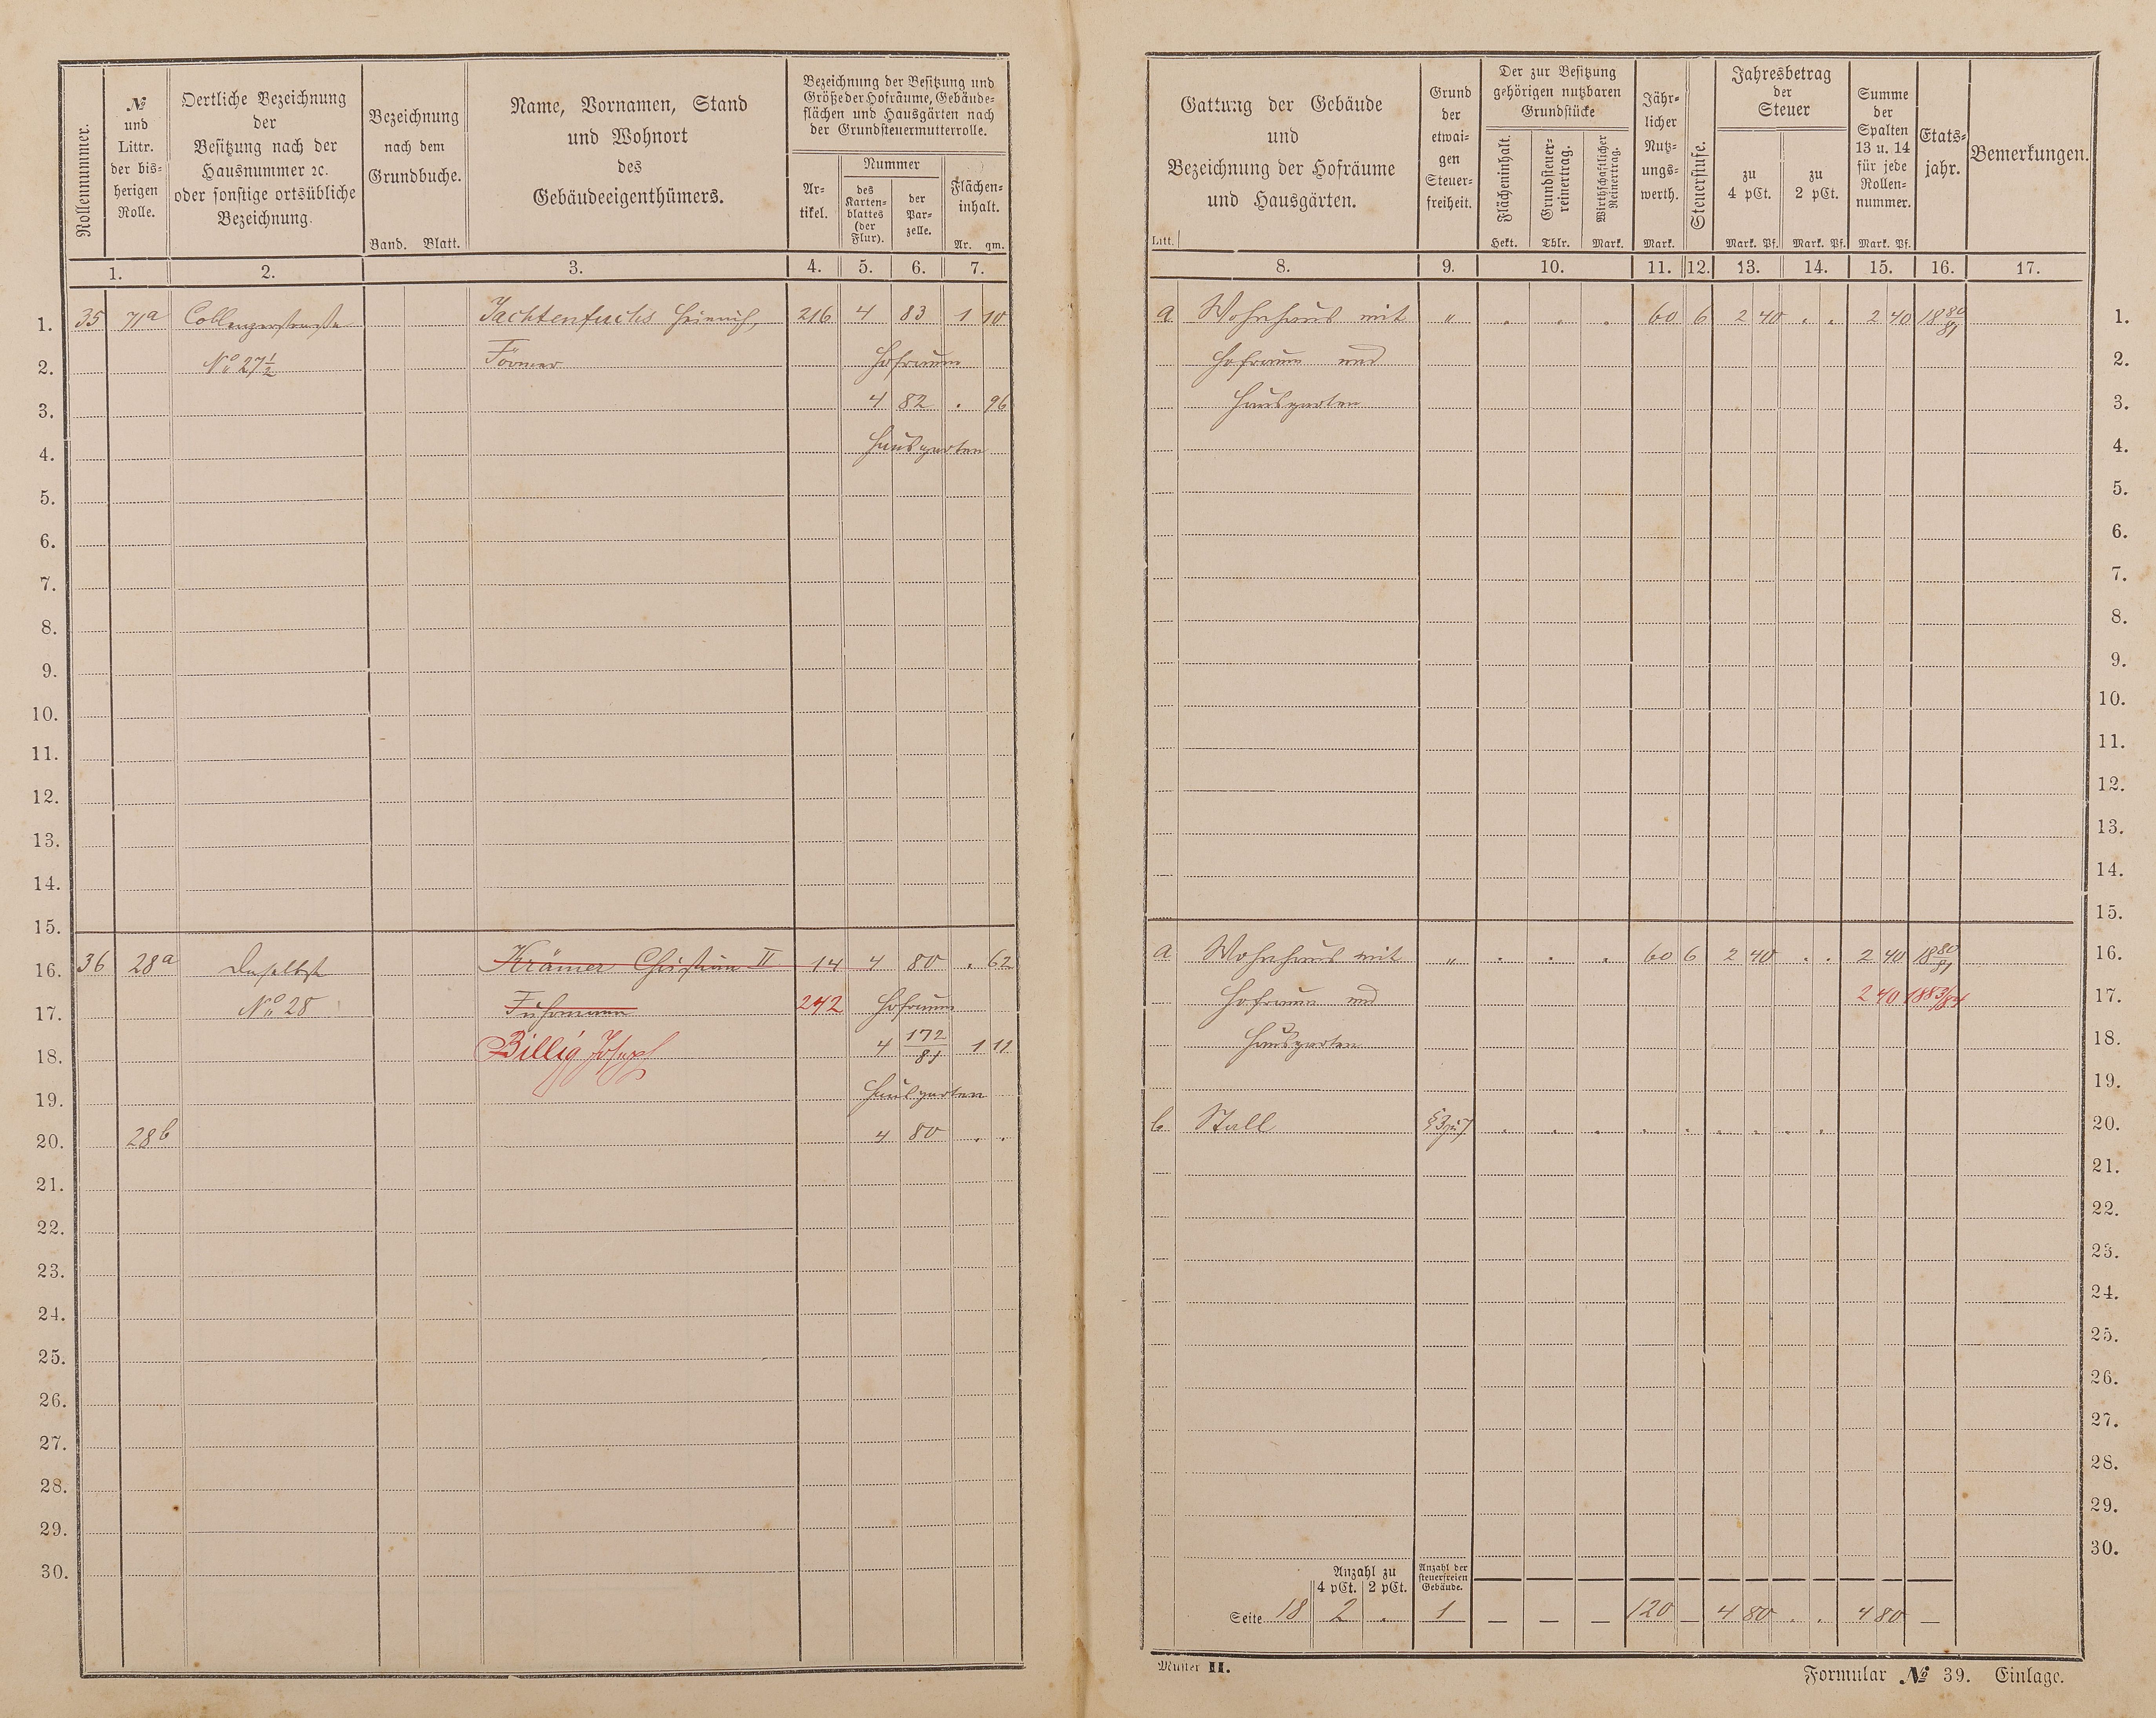 Rollennummer.
№
und
Littr.
der bis-
herigen
Rolle.
Oertliche Bezeichnung
der
Besitzung nach der
Hausnummer ꝛc.
oder sonstige ortsübliche
Bezeichnung.
Bezeichnung
nach dem
Grundbuche.
Band. Blatt.
Name, Vornamen, Stand
und Wohnort
des
Gebäudeeigenthümers.
Bezeichnung der Besitzung und
Größe der Hofräume, Gebäude-
flächen und Hausgärten nach
der Grundsteuermutterrolle.
Ar-
tikel.
Nummer
des
Karten-
blattes
(der
Flur).
der
Par-
zelle.
Flächen-
inhalt.
Ar. qm.
1. 2. 3. 4. 5. 6. 7.
1. 35 71a Coblenzerstraße Jachtenfuchs Heinrich, 216 4 83 1 10
2. No 27½ Former Hofraum
3. 4 82 . 96
4. Hausgarten
5.
6.
7.
8.
9.
10.
11.
12.
13.
14.
15.
16. 36 28a Daselbst Krämer Christian II 14 4 80 . 62
17. No 28 Fuhrmann 242 Hofraum
18. Billig Joseph 4 172/81 1 11
19. Hausgarten
20. 28b 4 80 . .
21.
22.
23.
24.
25.
26.
27.
28.
29.
30.
Gattung der Gebäude
und
Bezeichnung der Hofräume
und Hausgärten.
Litt.
Grund
der
etwai-
gen
Steuer-
freiheit.
Der zur Besitzung
gehörigen nutzbaren
Grundstücke
Flächeninhalt.
Hekt.
Grundsteuer-
reinertrag.
Thlr.
Wirthschaftlicher
Reinertrag.
Mark.
Jähr-
licher
Nutz-
ungs-
werth.
Mark.
Steuerstufe.
Jahresbetrag
der
Steuer
zu
4 pCt.
Mark. Pf.
zu
2 pCt.
Mark. Pf.
Summe
der
Spalten
13 u. 14
für jede
Rollen-
nummer.
Mark. Pf.
Etats-
jahr.
Bemerkungen.
8. 9. 10. 11. 12. 13. 14. 15. 16. 17.
a Wohnhaus mit " . . . 60 6 2 40 . . 2 40 1880/81 1.
Hofraum und 2.
Hausgarten 3.
4.
5.
6.
7.
8.
9.
10.
11.
12.
13.
14.
15.
a Wohnhaus mit " . . . 60 6 2 40 . . 2 40 1880/81 16.
Hofraum und 2 40 1883/84 17.
Hausgarten 18.
19.
b Stall . . . . . . . . . 20.
21.
22.
23.
24.
25.
26.
27.
28.
29.
30.
Anzahl zu
4 pCt. 2 pCt.
Anzahl der
steuerfreien
Gebäude.
Seite 18 2 . 1 — — — 120 — 4 80 . . 4 80 —
Muster II.
Formular № 39. Einlage.